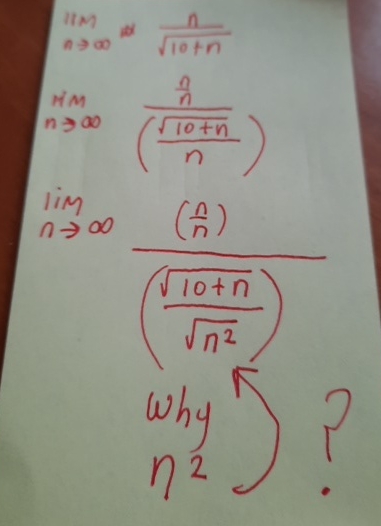 lim n→∞ n/√(10+n)
lim n→∞ (n/n)/(√(10+n)/n)
lim n→∞ (n/n)/(√(10+n)/√(n²))
Why
n² ?